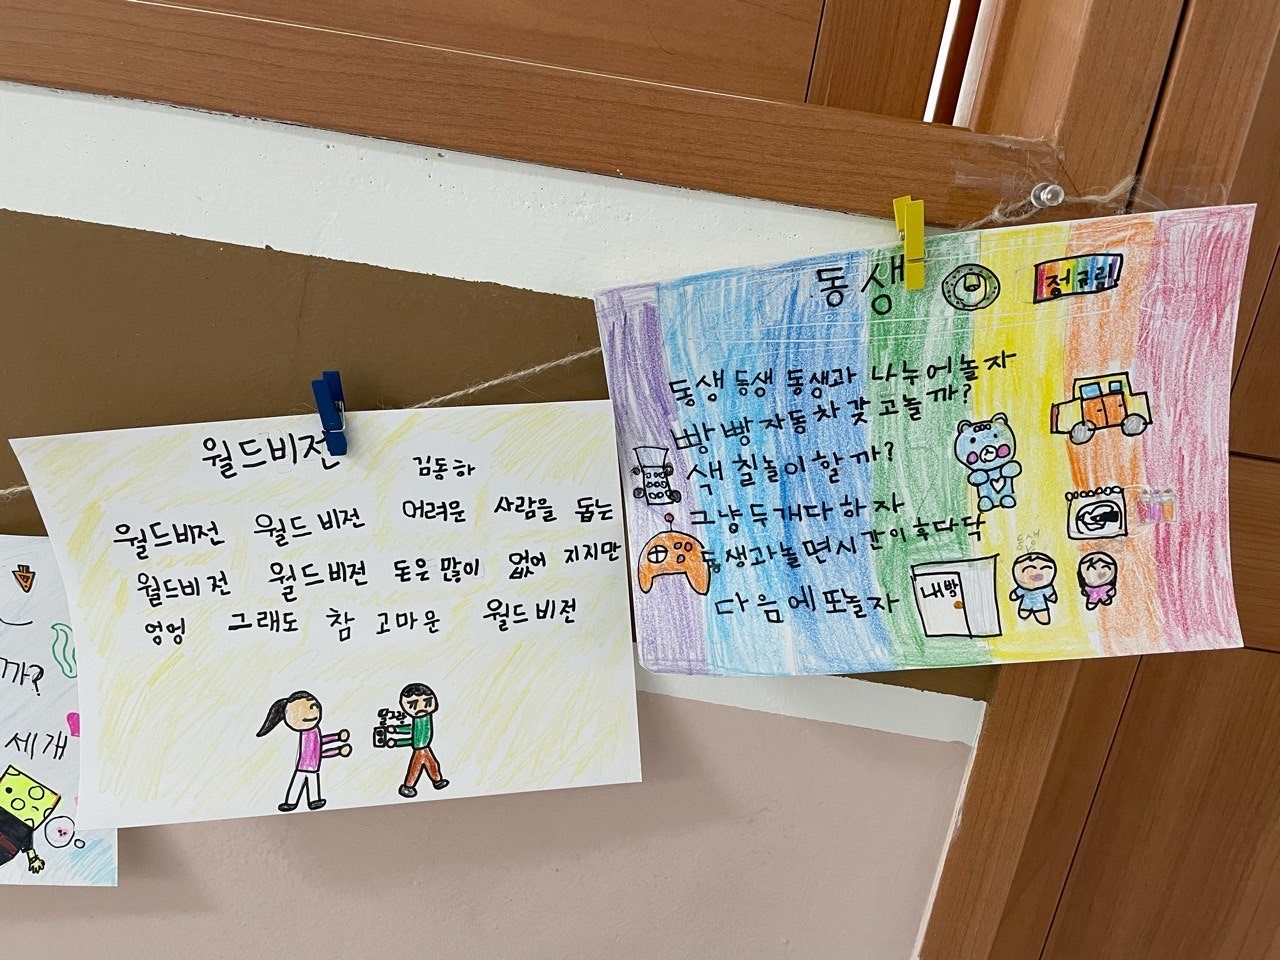 월드비전
김동하
월드비전 월드비전 어려운 사람을 돕는
월드비전 월드비전 돈은 많이 없어 지지만
엉엉 그래도 참 고마운 월드비전
동생
정규림
동생 동생 동생과 나누어놀자
빵빵자동차갖고놀까?
색칠놀이할까?
그냥두개다하자
동생과놀면시간이후다닥
다음에또놀자
내방
동생
까?
세개